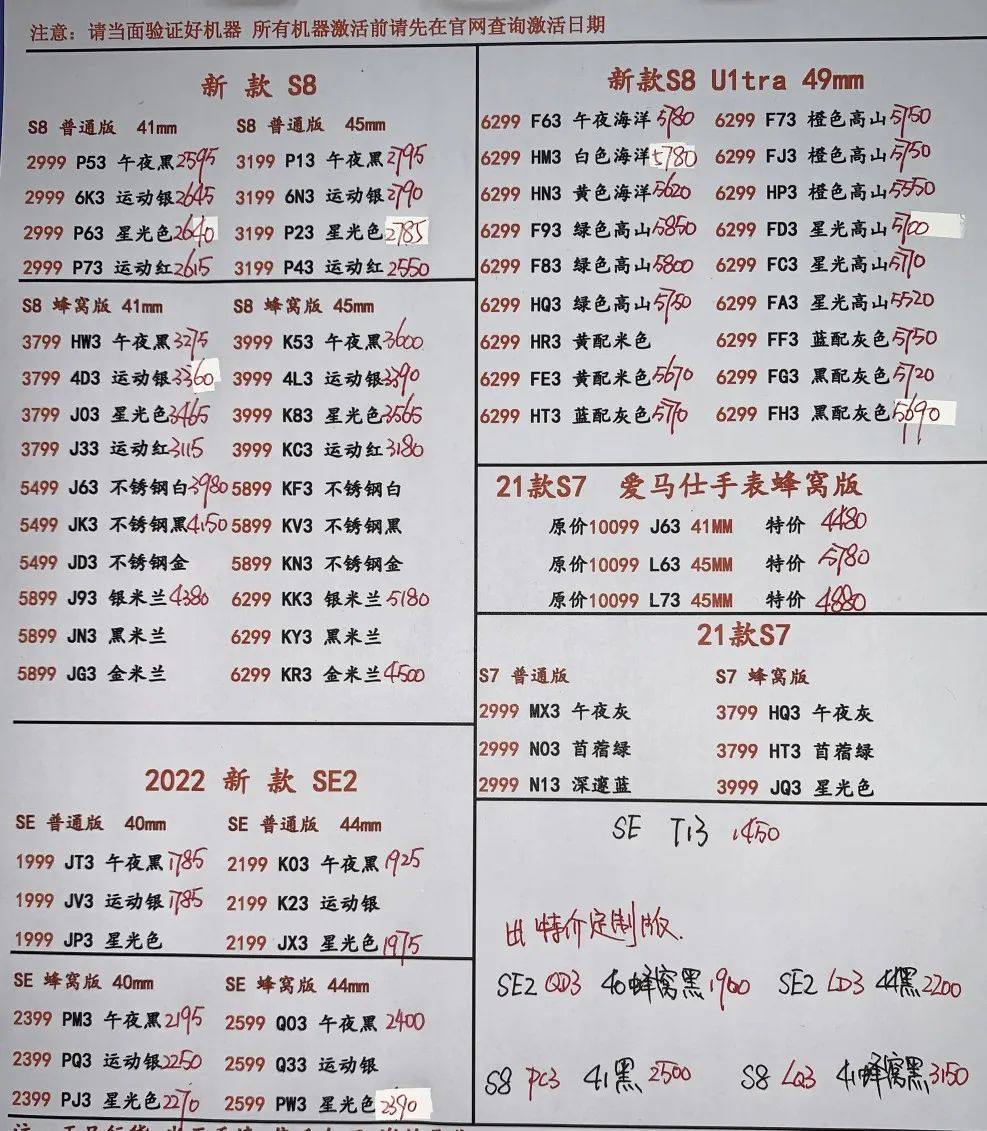 注意：请当面验证好机器 所有机器激活前请先在官网查询激活日期
新 款 S8
S8 普通版 41mm S8 普通版 45mm
2999 P53 午夜黑 2595 3199 P13 午夜黑 2795
2999 6K3 运动银 2645 3199 6N3 运动银 2790
2999 P63 星光色 2640 3199 P23 星光色 2785
2999 P73 运动红 2615 3199 P43 运动红 2550
S8 蜂窝版 41mm S8 蜂窝版 45mm
3799 HW3 午夜黑 3275 3999 K53 午夜黑 3600
3799 4D3 运动银 3360 3999 4L3 运动银 3390
3799 J03 星光色 3465 3999 K83 星光色 3565
3799 J33 运动红 3115 3999 KC3 运动红 3180
5499 J63 不锈钢白 3980 5899 KF3 不锈钢白
5499 JK3 不锈钢黑 4150 5899 KV3 不锈钢黑
5499 JD3 不锈钢金 5899 KN3 不锈钢金
5899 J93 银米兰 4380 6299 KK3 银米兰 5180
5899 JN3 黑米兰 6299 KY3 黑米兰
5899 JG3 金米兰 6299 KR3 金米兰 4500
2022 新 款 SE2
SE 普通版 40mm SE 普通版 44mm
1999 JT3 午夜黑 1785 2199 K03 午夜黑 1925
1999 JV3 运动银 1785 2199 K23 运动银
1999 JP3 星光色 2199 JX3 星光色 1975
SE 蜂窝版 40mm SE 蜂窝版 44mm
2399 PM3 午夜黑 2195 2599 Q03 午夜黑 2400
2399 PQ3 运动银 2250 2599 Q33 运动银
2399 PJ3 星光色 2270 2599 PW3 星光色 2390
新款S8 U1tra 49mm
6299 F63 午夜海洋 5780 6299 F73 橙色高山 5750
6299 HM3 白色海洋 5780 6299 FJ3 橙色高山 5750
6299 HN3 黄色海洋 5620 6299 HP3 橙色高山 5550
6299 F93 绿色高山 5850 6299 FD3 星光高山 5700
6299 F83 绿色高山 5800 6299 FC3 星光高山 5770
6299 HQ3 绿色高山 5750 6299 FA3 星光高山 5520
6299 HR3 黄配米色 6299 FF3 蓝配灰色 5750
6299 FE3 黄配米色 5670 6299 FG3 黑配灰色 5720
6299 HT3 蓝配灰色 5770 6299 FH3 黑配灰色 5690
21款S7 爱马仕手表蜂窝版
原价10099 J63 41MM 特价 4480
原价10099 L63 45MM 特价 5780
原价10099 L73 45MM 特价 4880
21款S7
S7 普通版 S7 蜂窝版
2999 MX3 午夜灰 3799 HQ3 午夜灰
2999 N03 苜蓿绿 3799 HT3 苜蓿绿
2999 N13 深邃蓝 3999 JQ3 星光色
SE T13 1450
出特价定制版
SE2 QD3 40蜂窝黑 1900 SE2 LD3 44黑 2200
S8 PC3 41黑 2500 S8 LQ3 41蜂窝黑 3150